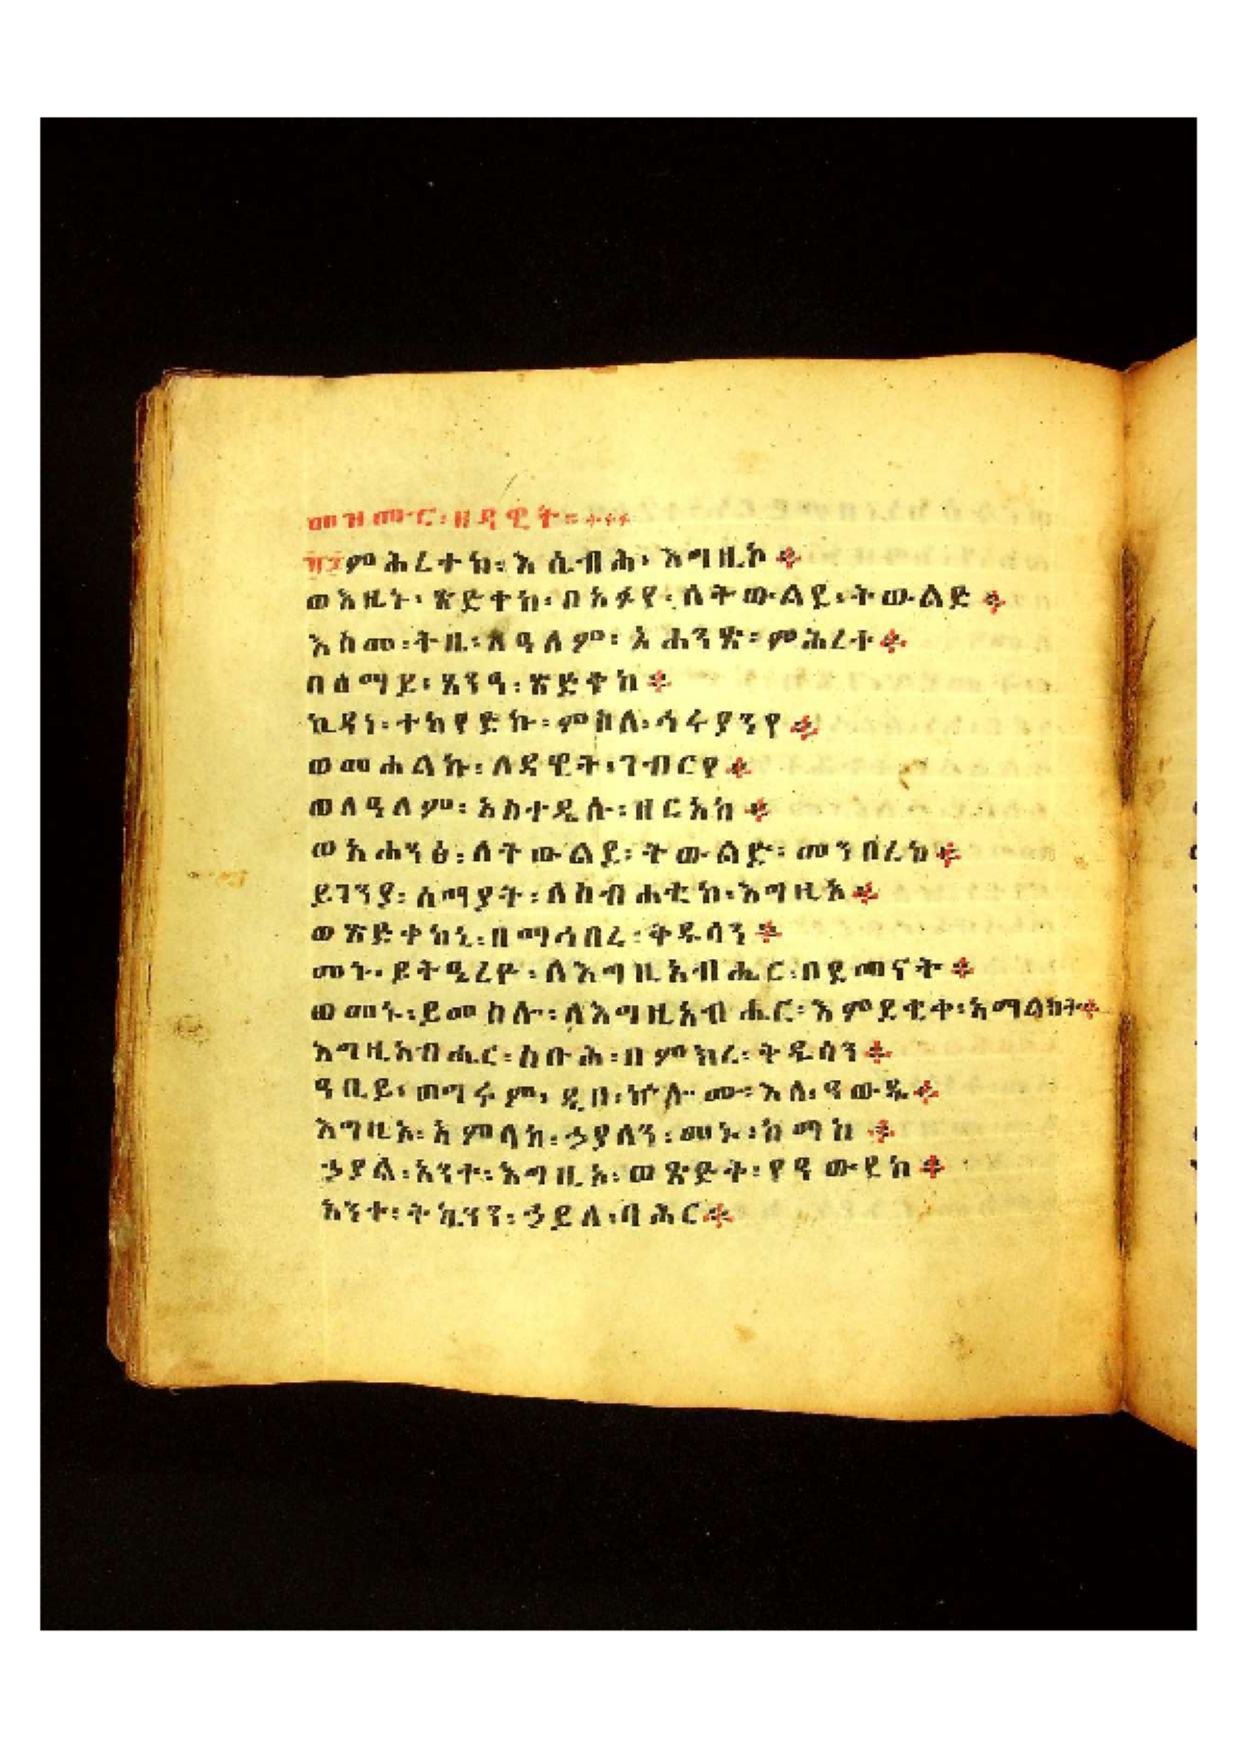 መዝሙር፡ዘዳዊት።
ምሕረተከ፡እሴብሕ፡እግዚኦ
ወእዜኑ፡ጽድቀከ፡በአፉየ፡ለትውልደ፡ትውልድ
እስመ፡ትቤ፡ለዓለም፡አሐንጽ፡ምሕረተ
በሰማይ፡ጸንዓ፡ጽድቅከ
ኪዳነ፡ተካየድኩ፡ምስለ፡ኅሩያንየ
ወመሐልኩ፡ለዳዊት፡ገብርየ
ወለዓለም፡አስተዴሉ፡ዘርአከ
ወአሐንፅ፡ለትውልደ፡ትውልድ፡መንበረከ
ይገንያ፡ሰማያት፡ለስብሐቲከ፡እግዚኦ
ወጽድቀከኒ፡በማኅበረ፡ቅዱሳን
መኑ፡ይትዔረዮ፡ለእግዚአብሔር፡በደመናት
ወመኑ፡ይመስሎ፡ለእግዚአብሔር፡እምደቂቀ፡አማልክት
እግዚአብሔር፡ስቡሕ፡በምክረ፡ቅዱሳን
ዓቢይ፡ወግሩም፡ዲበ፡ኵሎሙ፡እለ፡ዓውዱ
እግዚኦ፡አምላከ፡ኃያላን፡መኑ፡ከማከ
ኃያል፡አንተ፡እግዚኦ፡ወጽድቅ፡የዓውደከ
አንተ፡ትኴንን፡ኃይለ፡ባሕር